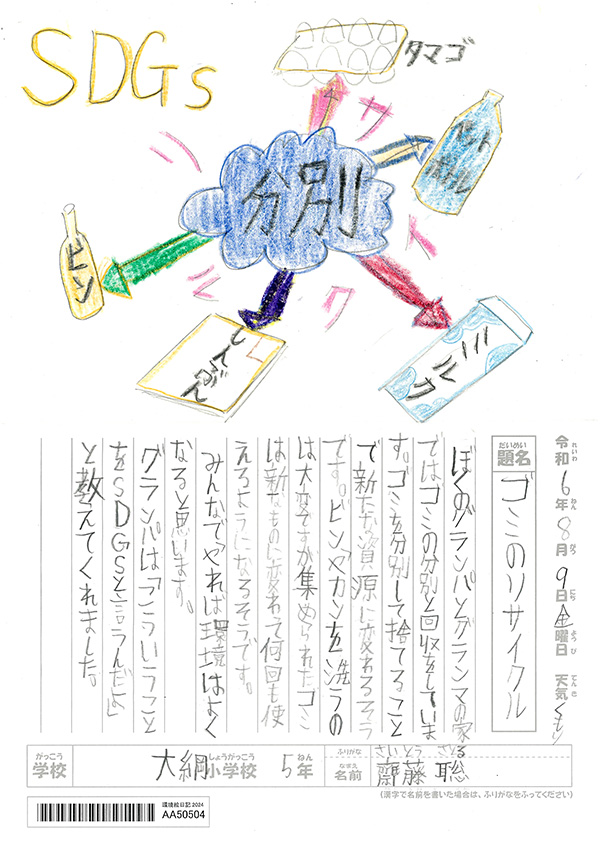 SDGs
タマゴ
ペットボトル
分別
ビン
しんぶん
ミルク
令和6年8月9日金曜日 天気くもり
れいわ ねん がつ にち ようび てんき
だいめい
題名 ゴミのリサイクル
ぼくのグランパとグランマの家
ではゴミの分別と回収をしていま
す。ゴミを分別して捨てること
で新たな資源に変わるそう
です。ビンやカンを洗うの
は大変ですが集められたゴミ
は新たなものに変わって何回も使
えるようになるそうです。
みんなでやれば環境はよく
なると思います。
グランパは「こういうこと
をSDGSと言うんだよ」
と教えてくれました。
がっこう
学校 大綱小学校 5年
しょうがっこう ねん
ふりがな さいとう さとる
なまえ
名前 齋藤 聡
(漢字で名前を書いた場合は、ふりがなをふってください)
環境絵日記 2024
AA50504